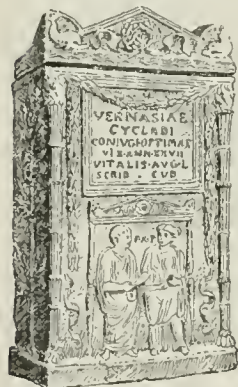 VERNASIAE
CYCLADI
CONIVGI·OPTIMAE
VIX·ANN·XXVII
VITALIS·AVG·L
SCRIB · CVB